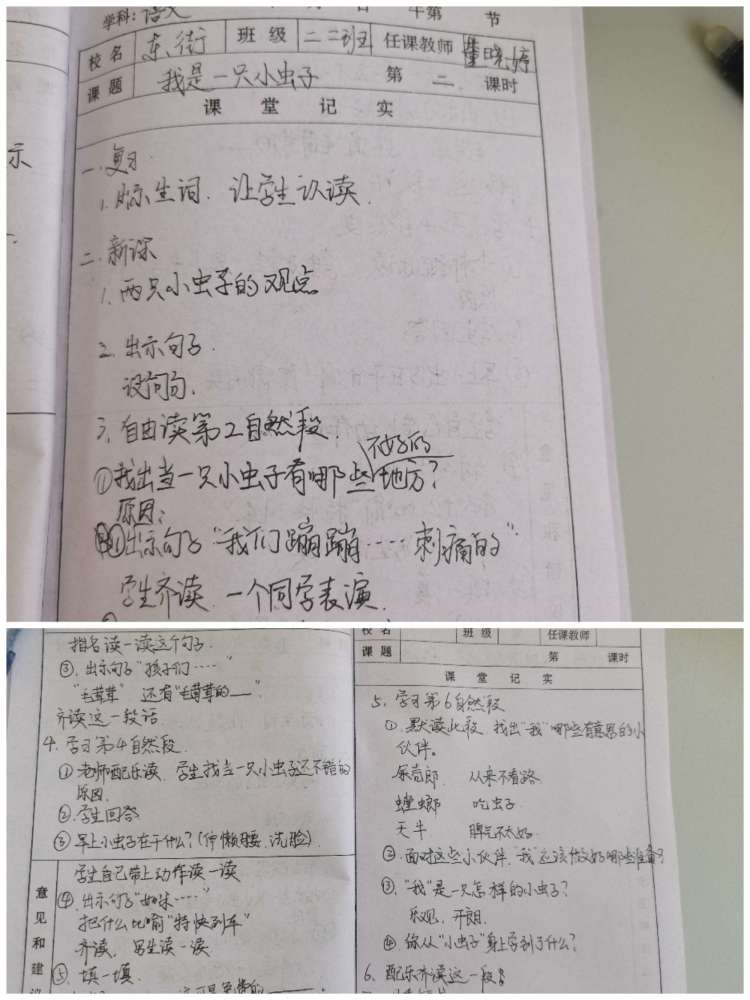 学科：语文 午第 节
校名 东街 班级 二二班 任课教师 董晓婷
课题 我是一只小虫子 第二课时
课堂记实
一.复习.
1.出示生词.让学生认读.
二.新课
1.两只小虫子的观点
2.出示句子.
设问句.
3.自由读第2自然段.
不好的
①找出当一只小虫子有哪些地方?
原因:
①出示句子"我们蹦蹦……刺痛的"
学生齐读.一个同学表演.
指名读一读这个句子.
③.出示句子"孩子们……"
"毛茸茸" 还有"毛茸茸的__".
齐读这一段话
4.学习第4自然段.
①老师配乐读.学生找当一只小虫子还不错的
原因.
②学生回答
③早上小虫子在干什么?(伸懒腰.洗脸).
学生自己带上动作读一读
④.出示句子"如果……"
把什么比喻"特快列车"
齐读.男生读一读
⑤.填一填.
意见和建议
校名 班级 任课教师
课题 第 课时
课堂记实
5.学习第6自然段
①.默读此段.找出"我"哪些有意思的小
伙伴。
屎壳郎 从来不看路
螳螂 吃虫子.
天牛 脾气不太好.
②.面对这些小伙伴."我"应该做好哪些准备?
③."我"是一只怎样的小虫子?
乐观、开朗.
④你从"小虫子"身上学到了什么?
6.配乐齐读这一段.